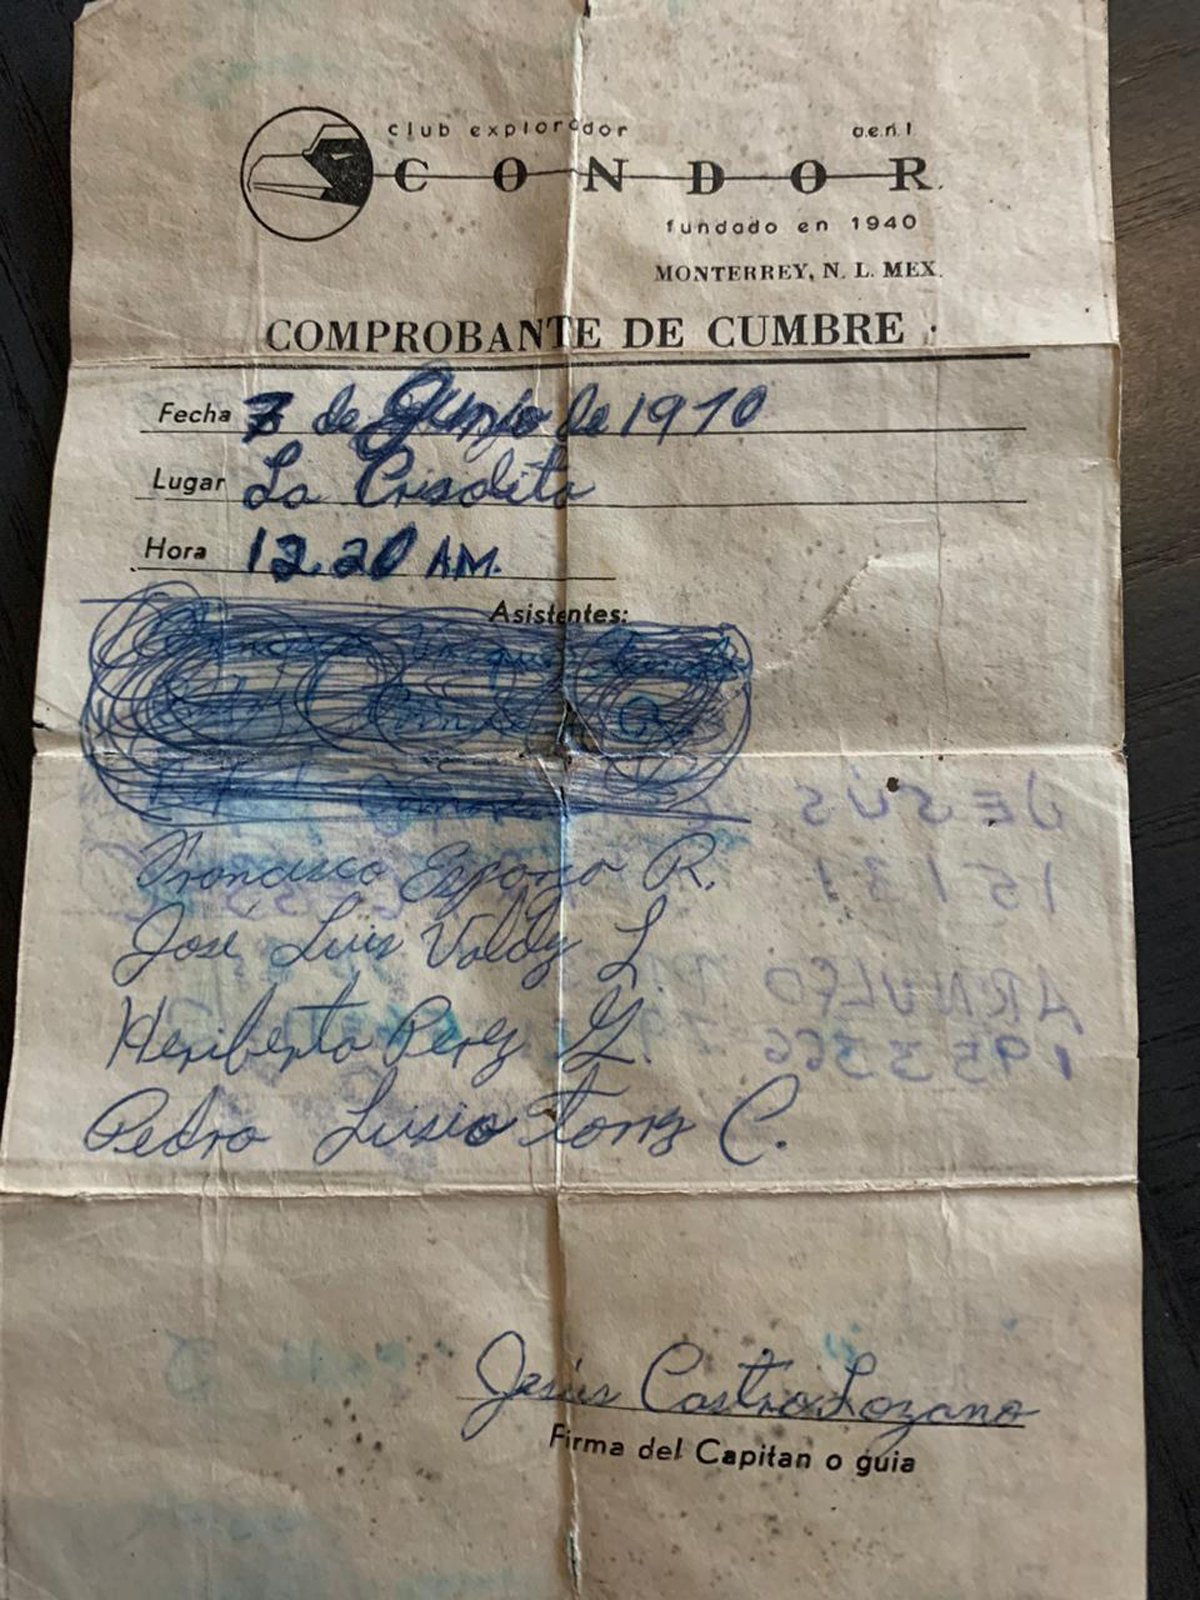 club explorador a.e.n.l.
CONDOR
fundado en 1940
MONTERREY, N. L. MEX.
COMPROBANTE DE CUMBRE
Fecha 7 de Junio de 1970
Lugar La Cisolita
Hora 12.20 A.M.
Asistentes:
Francisco Esparza R.
José Luis Valdz L
Heriberto Perez G.
Pedro Lisio Torrz C.
Jesús Castro Lozano
Firma del Capitan o guia
JESUS
15131
ARNULFO
1953366